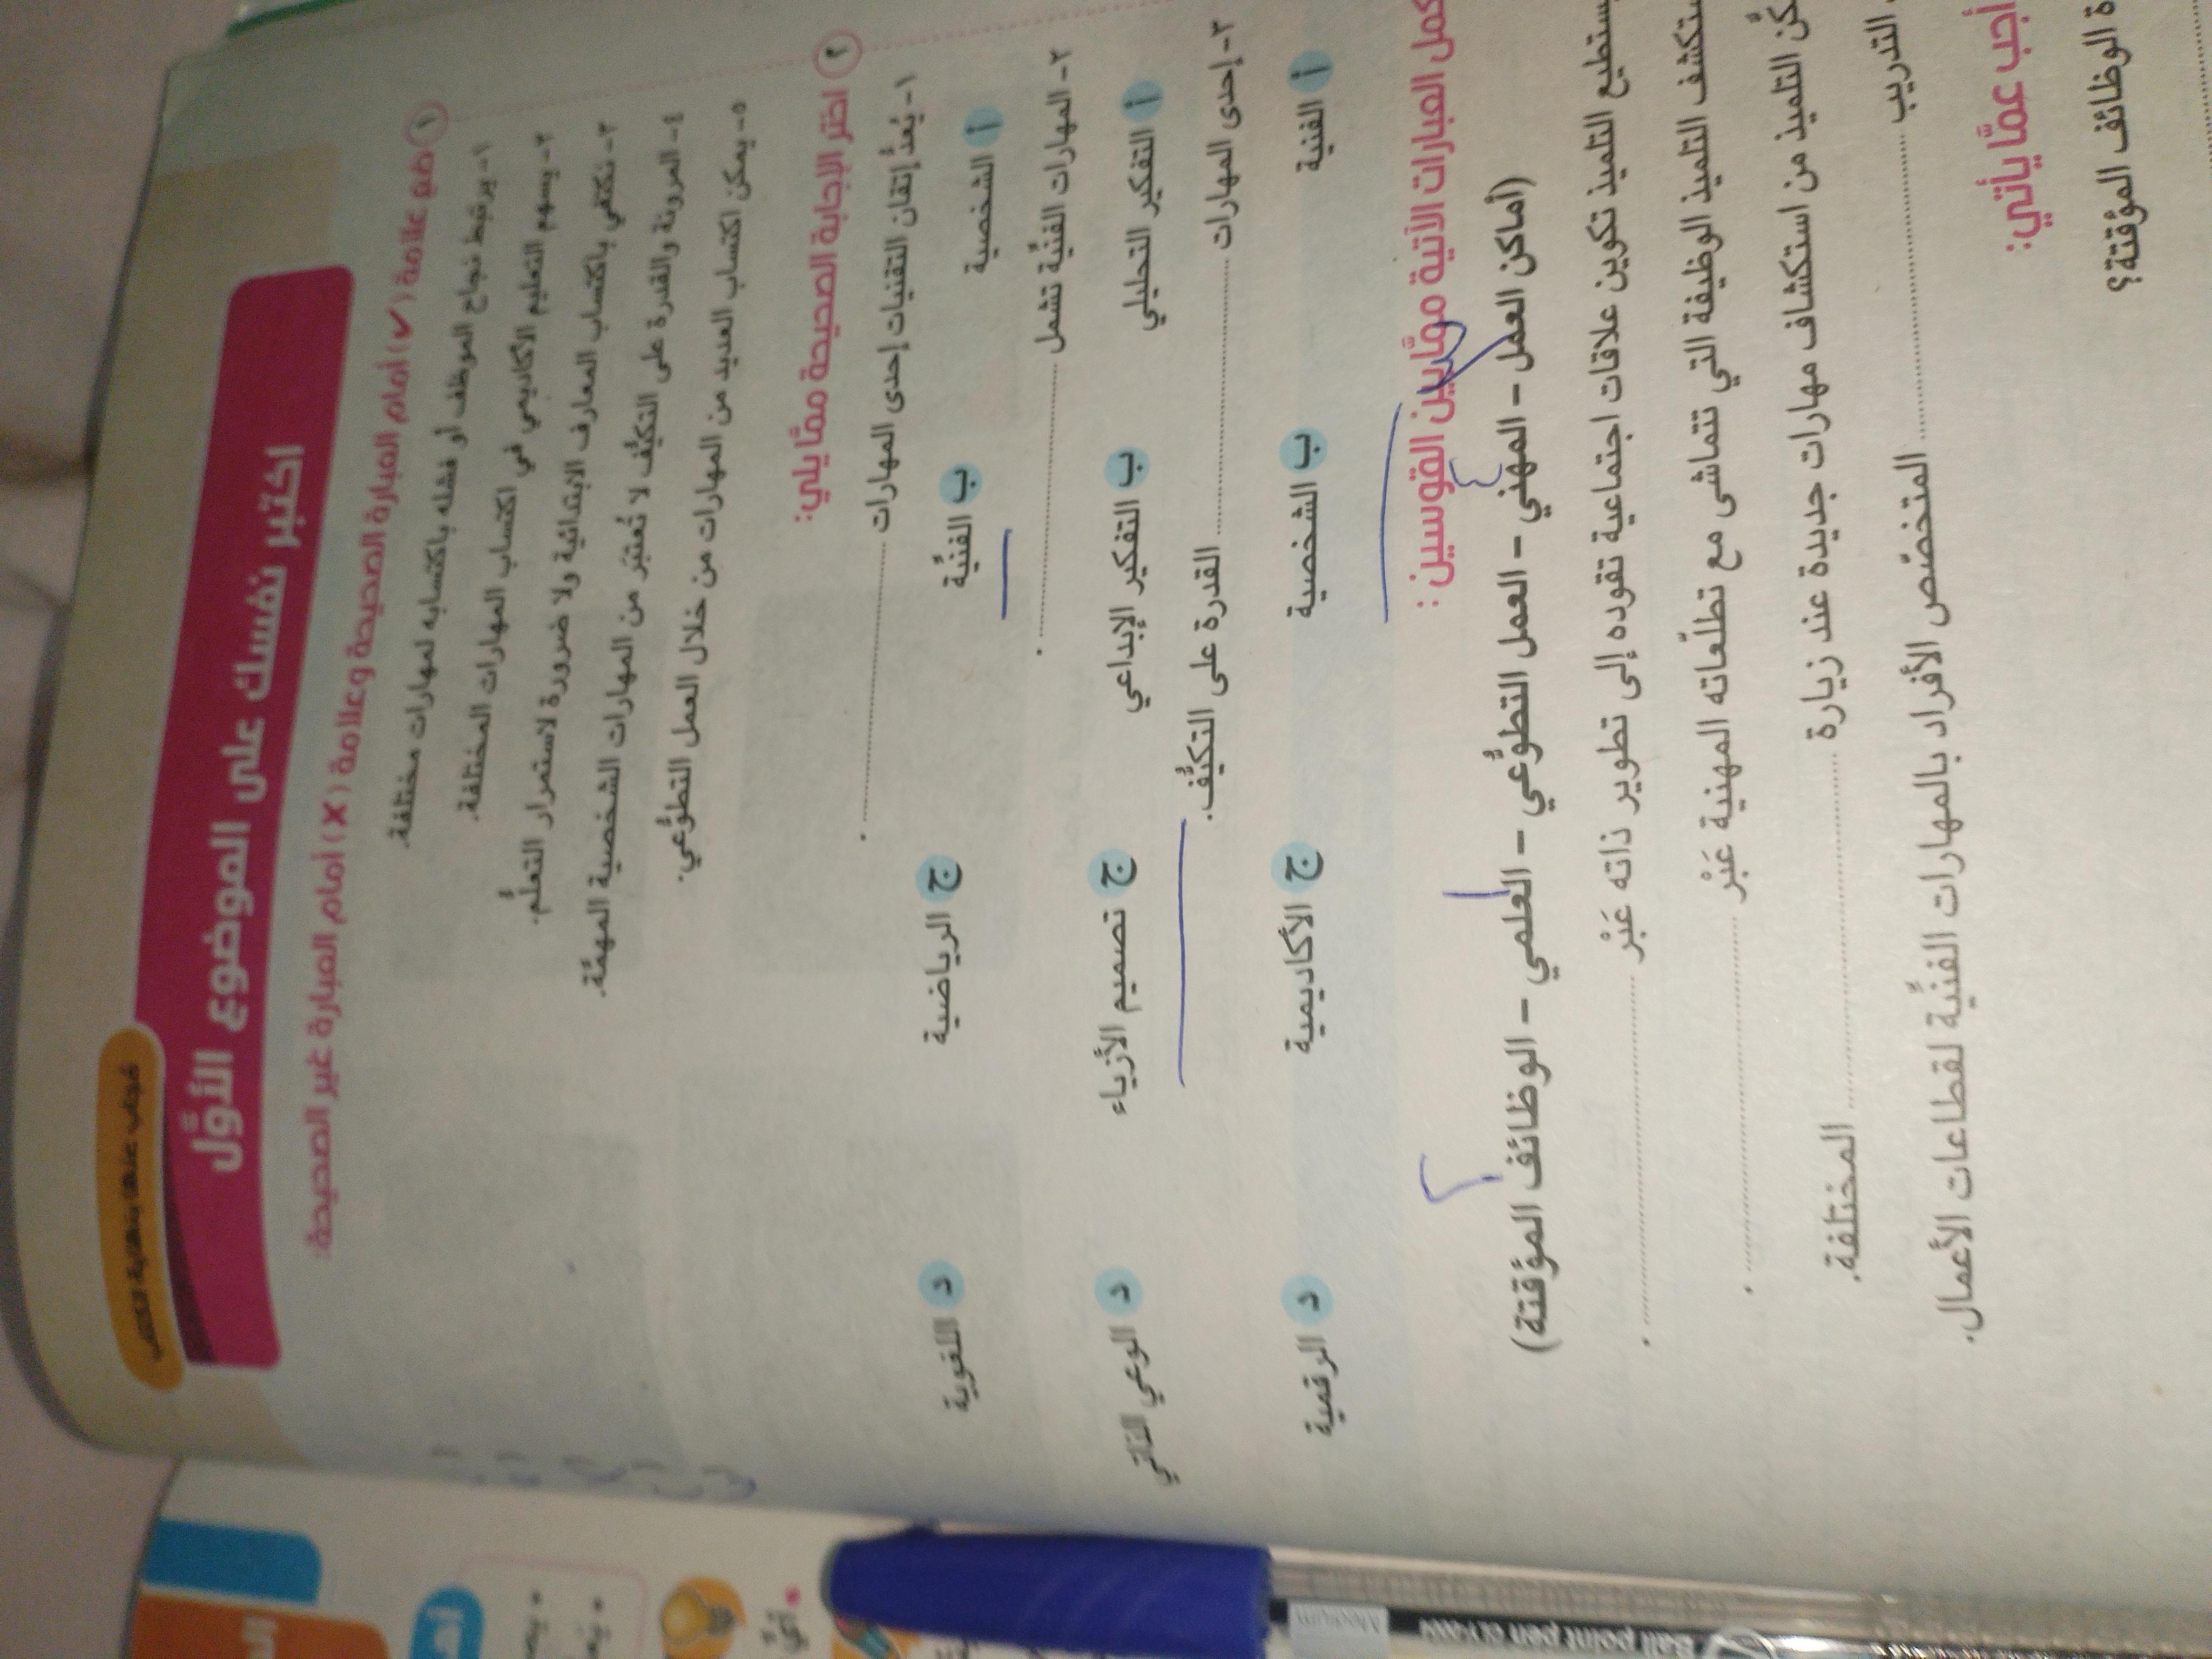 مُجاب عنها بنهاية الكتاب
اختبر نفسك على الموضوع الأوَّل
١ ضع علامة (✓) أمام العبارة الصحيحة وعلامة (✗) أمام العبارة غير الصحيحة:
١- يرتبط نجاح الموظف أو فشله باكتسابه لمهارات مختلفة.
٢- يسهم التعليم الأكاديمي في اكتساب المهارات المختلفة.
٣- نكتفي باكتساب المعارف الابتدائية ولا ضرورة لاستمرار التعلُّم.
٤- المرونة والقدرة على التكيُّف لا تُعتبَر من المهارات الشخصية المهمَّة.
٥- يمكن اكتساب العديد من المهارات من خلال العمل التطوُّعي.
٢ اختر الإجابة الصحيحة ممَّا يلي:
١- يُعدُّ إتقان التقنيات إحدى المهارات .......... .
أ الشخصية ب الفنيَّة ج الرياضية د اللغوية
٢- المهارات الفنيَّة تشمل .......... .
أ التفكير التحليلي ب التفكير الإبداعي ج تصميم الأزياء د الوعي الذاتي
٣- إحدى المهارات .......... القدرة على التكيُّف.
أ الفنية ب الشخصية ج الأكاديمية د الرقمية
كمل العبارات الآتية ممَّا بين القوسين:
(أماكن العمل – المهني – العمل التطوُّعي – العلمي – الوظائف المؤقتة)
ستطيع التلميذ تكوين علاقات اجتماعية تقوده إلى تطوير ذاته عَبْر .......... .
ستكشف التلميذ الوظيفة التي تتماشى مع تطلّعاته المهنية عَبْر .......... .
كَّن التلميذ من استكشاف مهارات جديدة عند زيارة .......... المختلفة.
التدريب .......... المتخصّص الأفراد بالمهارات الفنيَّة لقطاعات الأعمال.
أجب عمَّا يأتي:
ة الوظائف المؤقتة؟
Medium
Ball point pen